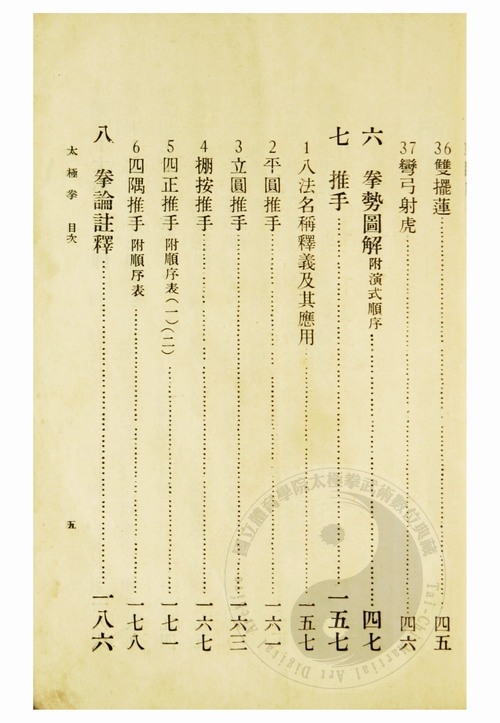 36雙擺蓮……四五
37彎弓射虎……四六
六 拳勢圖解附演式順序……四七
七 推手……一五七
1八法名稱釋義及其應用……一五七
2平圓推手……一六一
3立圓推手……一六三
4掤按推手……一六七
5四正推手附順序表(一)(二)……一七一
6四隅推手附順序表……一七八
八 拳論註釋……一八六
太極拳 目次
五
國立體育學院太極拳武術數位典藏
Tai-Chi Martial Art Digital